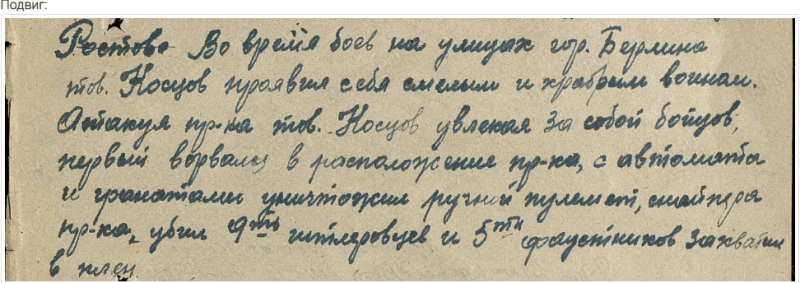 Подвиг:
Ростове Во время боев на улицах гор. Берлина
тов. Косцов проявил себя смелым и храбрым воином.
Атакуя пр-ка тов. Косцов увлекая за собой бойцов,
первый ворвался в расположение пр-ка, с автомата
и гранатами уничтожил ручной пулемет, снайпера
пр-ка, убил 9ть гитлеровцев и 5ти фаустников захватил
в плен